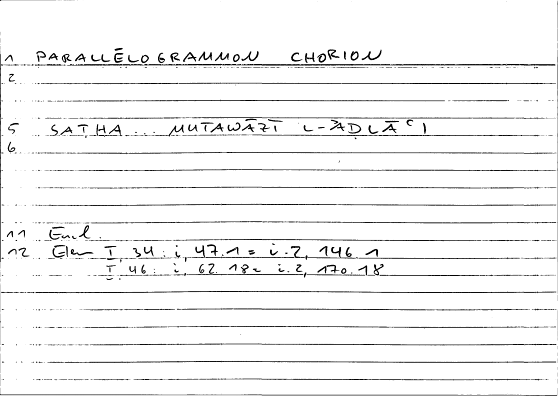 1 PARALLĒLOGRAMMON CHORION
2
5 SATHA... MUTAWĀZĪ L-ʾAḌLĀʿI
6
11 Eucl.
12 Elem I, 34 : i, 47.1 = i.2, 146.1
I, 46 : i, 62.18 = i.2, 170.18